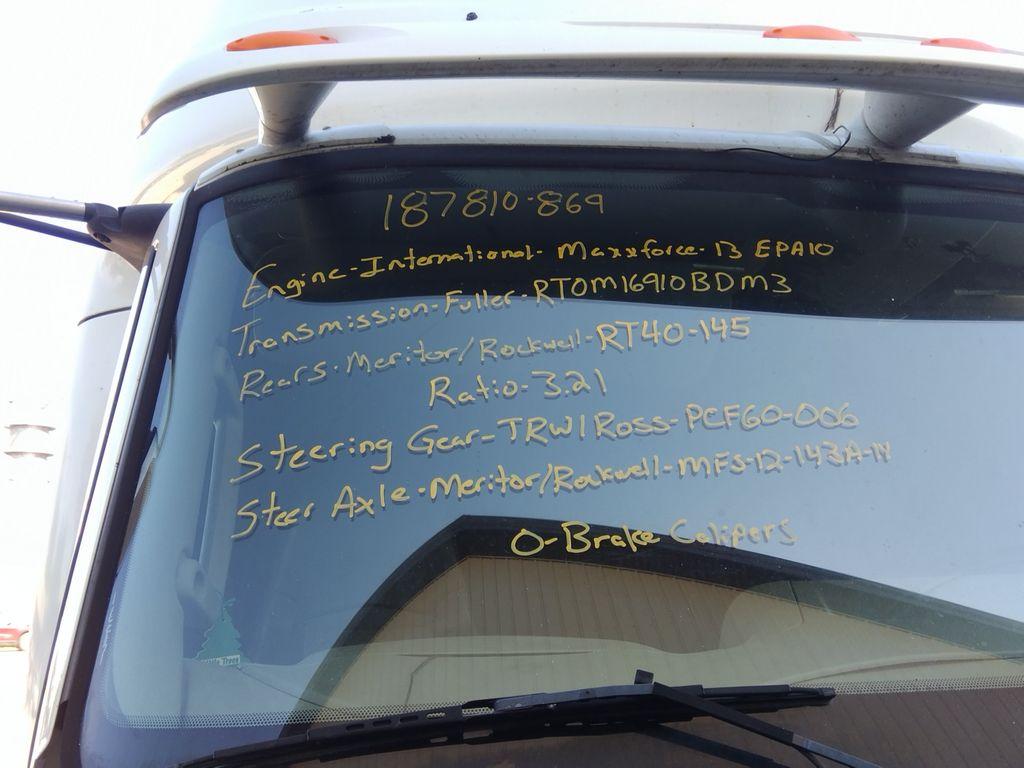 187810-869
Engine-International-Maxxforce-13 EPA10
Transmission-Fuller-RTOM16910BDM3
Rears-Meritor/Rockwell-RT40-145
Ratio-3.21
Steering Gear-TRW/Ross-PCF60-006
Steer Axle-Meritor/Rockwell-MFS-12-143A-N
0-Brake Calipers
Little Trees